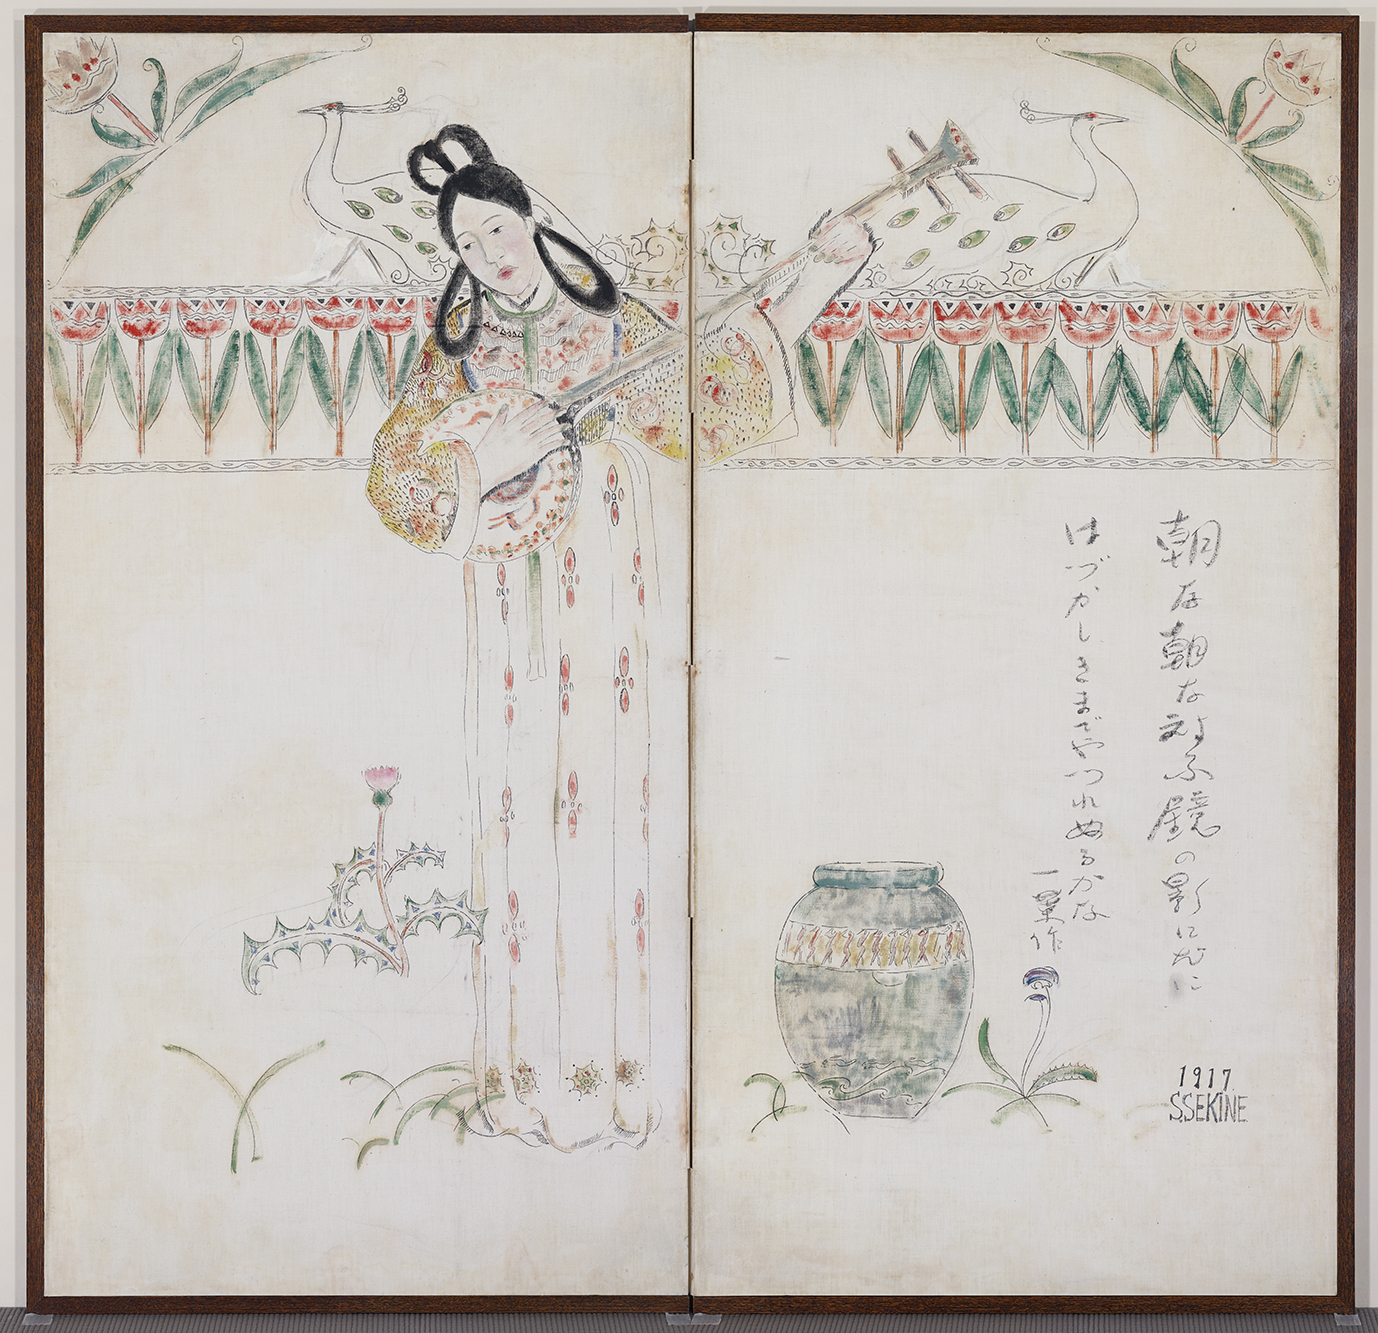 朝な朝な対ふ鏡の影にだに
はづかしきまでやつれぬるかな
作
1917
S.SEKINE.